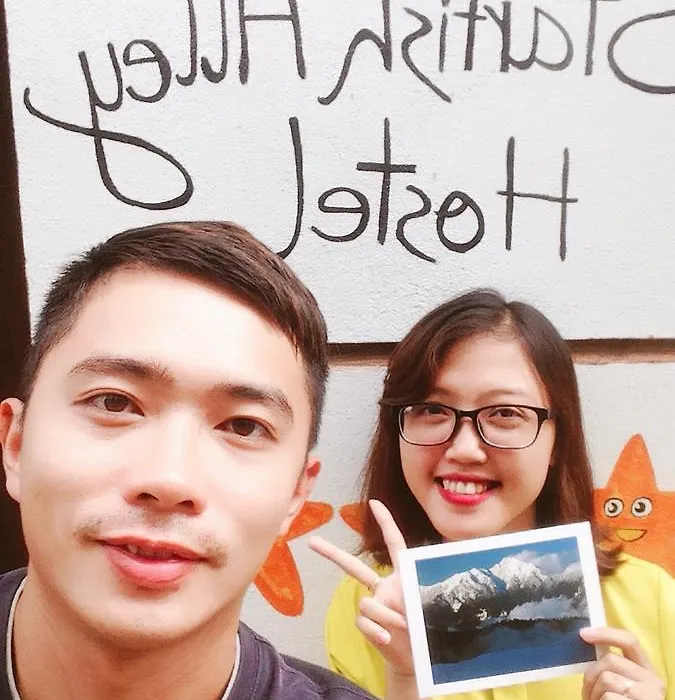 Starfish Alley
Hostel